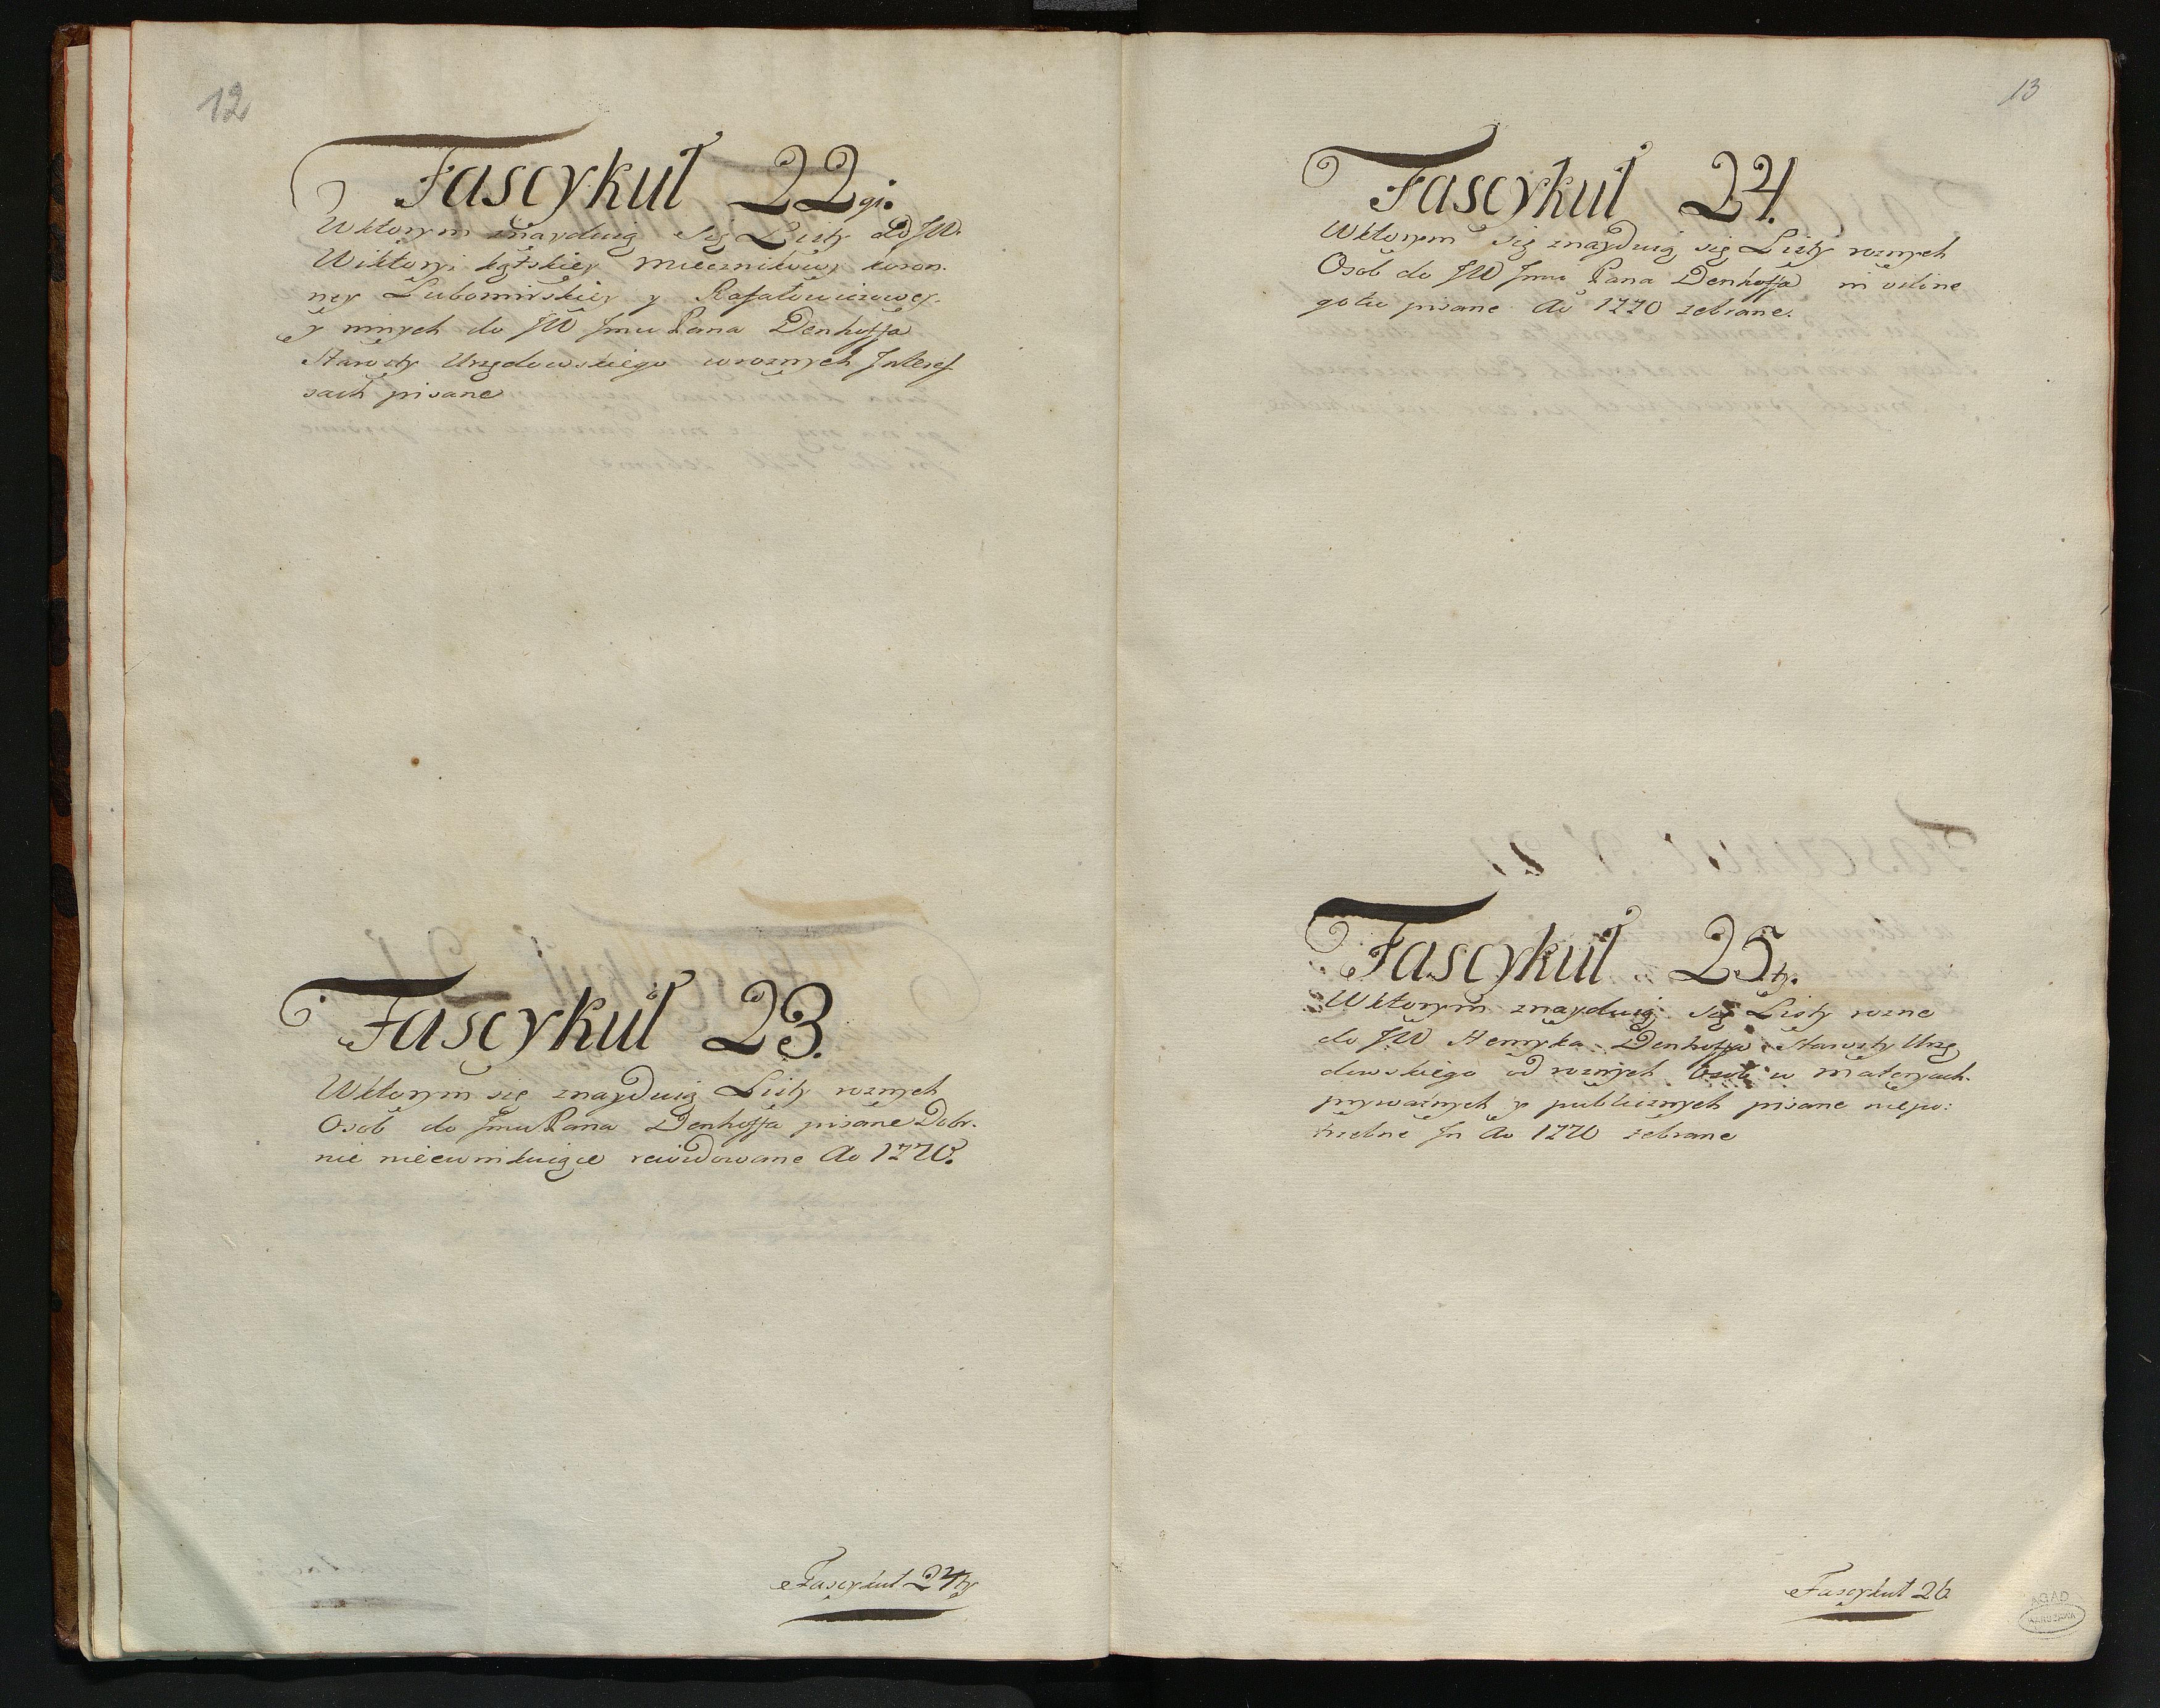 12
Fascykuł 22gi.
Wktorym znayduią Się Listy do JW.
Wiktoryi kątskiey Miecznikowy koron.
ney Lubomirskiey y Rafałowiczowey.
y innych do JW Jmu Pana Denhoffa
Starosty Urzędowskiego wroznych Interes
sach pisane
Fascykuł 23.
Wktorym się znayduią Listy roznych
Osob do Jmu Pana Denhoffa pisane Dobr.
nie rewidowane Ao 1770.
Fascykuł 24ty
13
Fascykuł 24.
Wktorym się znayduią się Listy roznych
Osob do JW Jmu Pana Denhoffa
pisane Ao 1770 zebrane.
Fascykuł 25ty.
Wktorym znayduią się Listy rozne
do JW Henryka Denhoffa Starosty Urzę
dowskiego od roznych Osob w materyach
prywatnych y publicznych pisane niepo:
trzebne In Ao 1770 zebrane
Fascykuł 26
AGAD
WARSZAWA